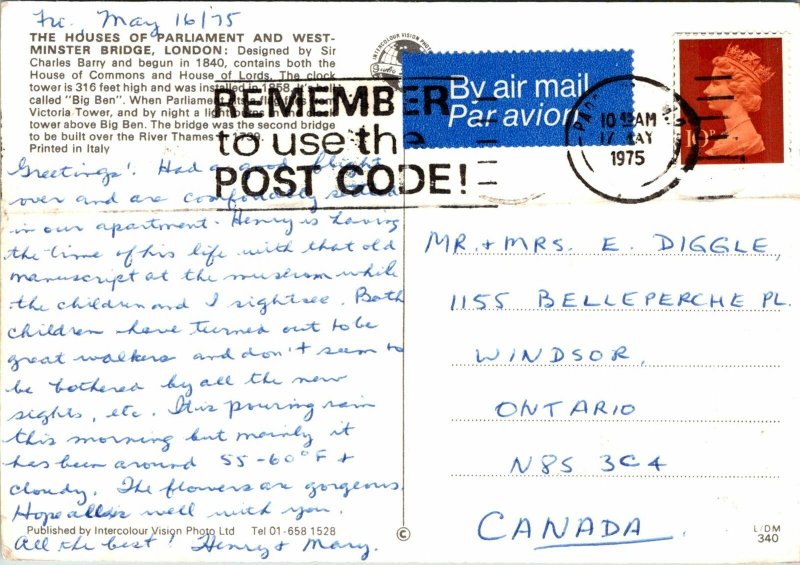 Fri. May 16/75
THE HOUSES OF PARLIAMENT AND WEST-
MINSTER BRIDGE, LONDON: Designed by Sir
Charles Barry and begun in 1840, contains both the
House of Commons and House of Lords. The clock
tower is 316 feet high and was installed in 1858. It's bell
called "Big Ben". When Parliament a flag flies from
Victoria Tower, and by night a light in the
tower above Big Ben. The bridge was the second bridge
to be built over the River Thames in
Printed in Italy
INTERCOLOUR VISION PHOTO
REMEMBER
to use the
POST CODE!
By air mail
Par avion
10 AM
17 MAY
1975
10P
Greetings! Had a good flight
over and are comfortably settled
in our apartment. Henry is having
the time of his life with that old
manuscript at the museum while
the children and I sightsee. Both
children have turned out to be
great walkers and don't seem to
be bothered by all the new
sights, etc. It is pouring rain
this morning but mainly it
has been around 55-60°F +
cloudy. The flowers are gorgeous.
Hope all is well with you.
Published by Intercolour Vision Photo Ltd Tel 01-658 1528
All the best! Henry & Mary.
MR. + MRS. E. DIGGLE,
1155 BELLEPERCHE PL.
WINDSOR,
ONTARIO
N8S 3C4
CANADA.
©
L/DM
340